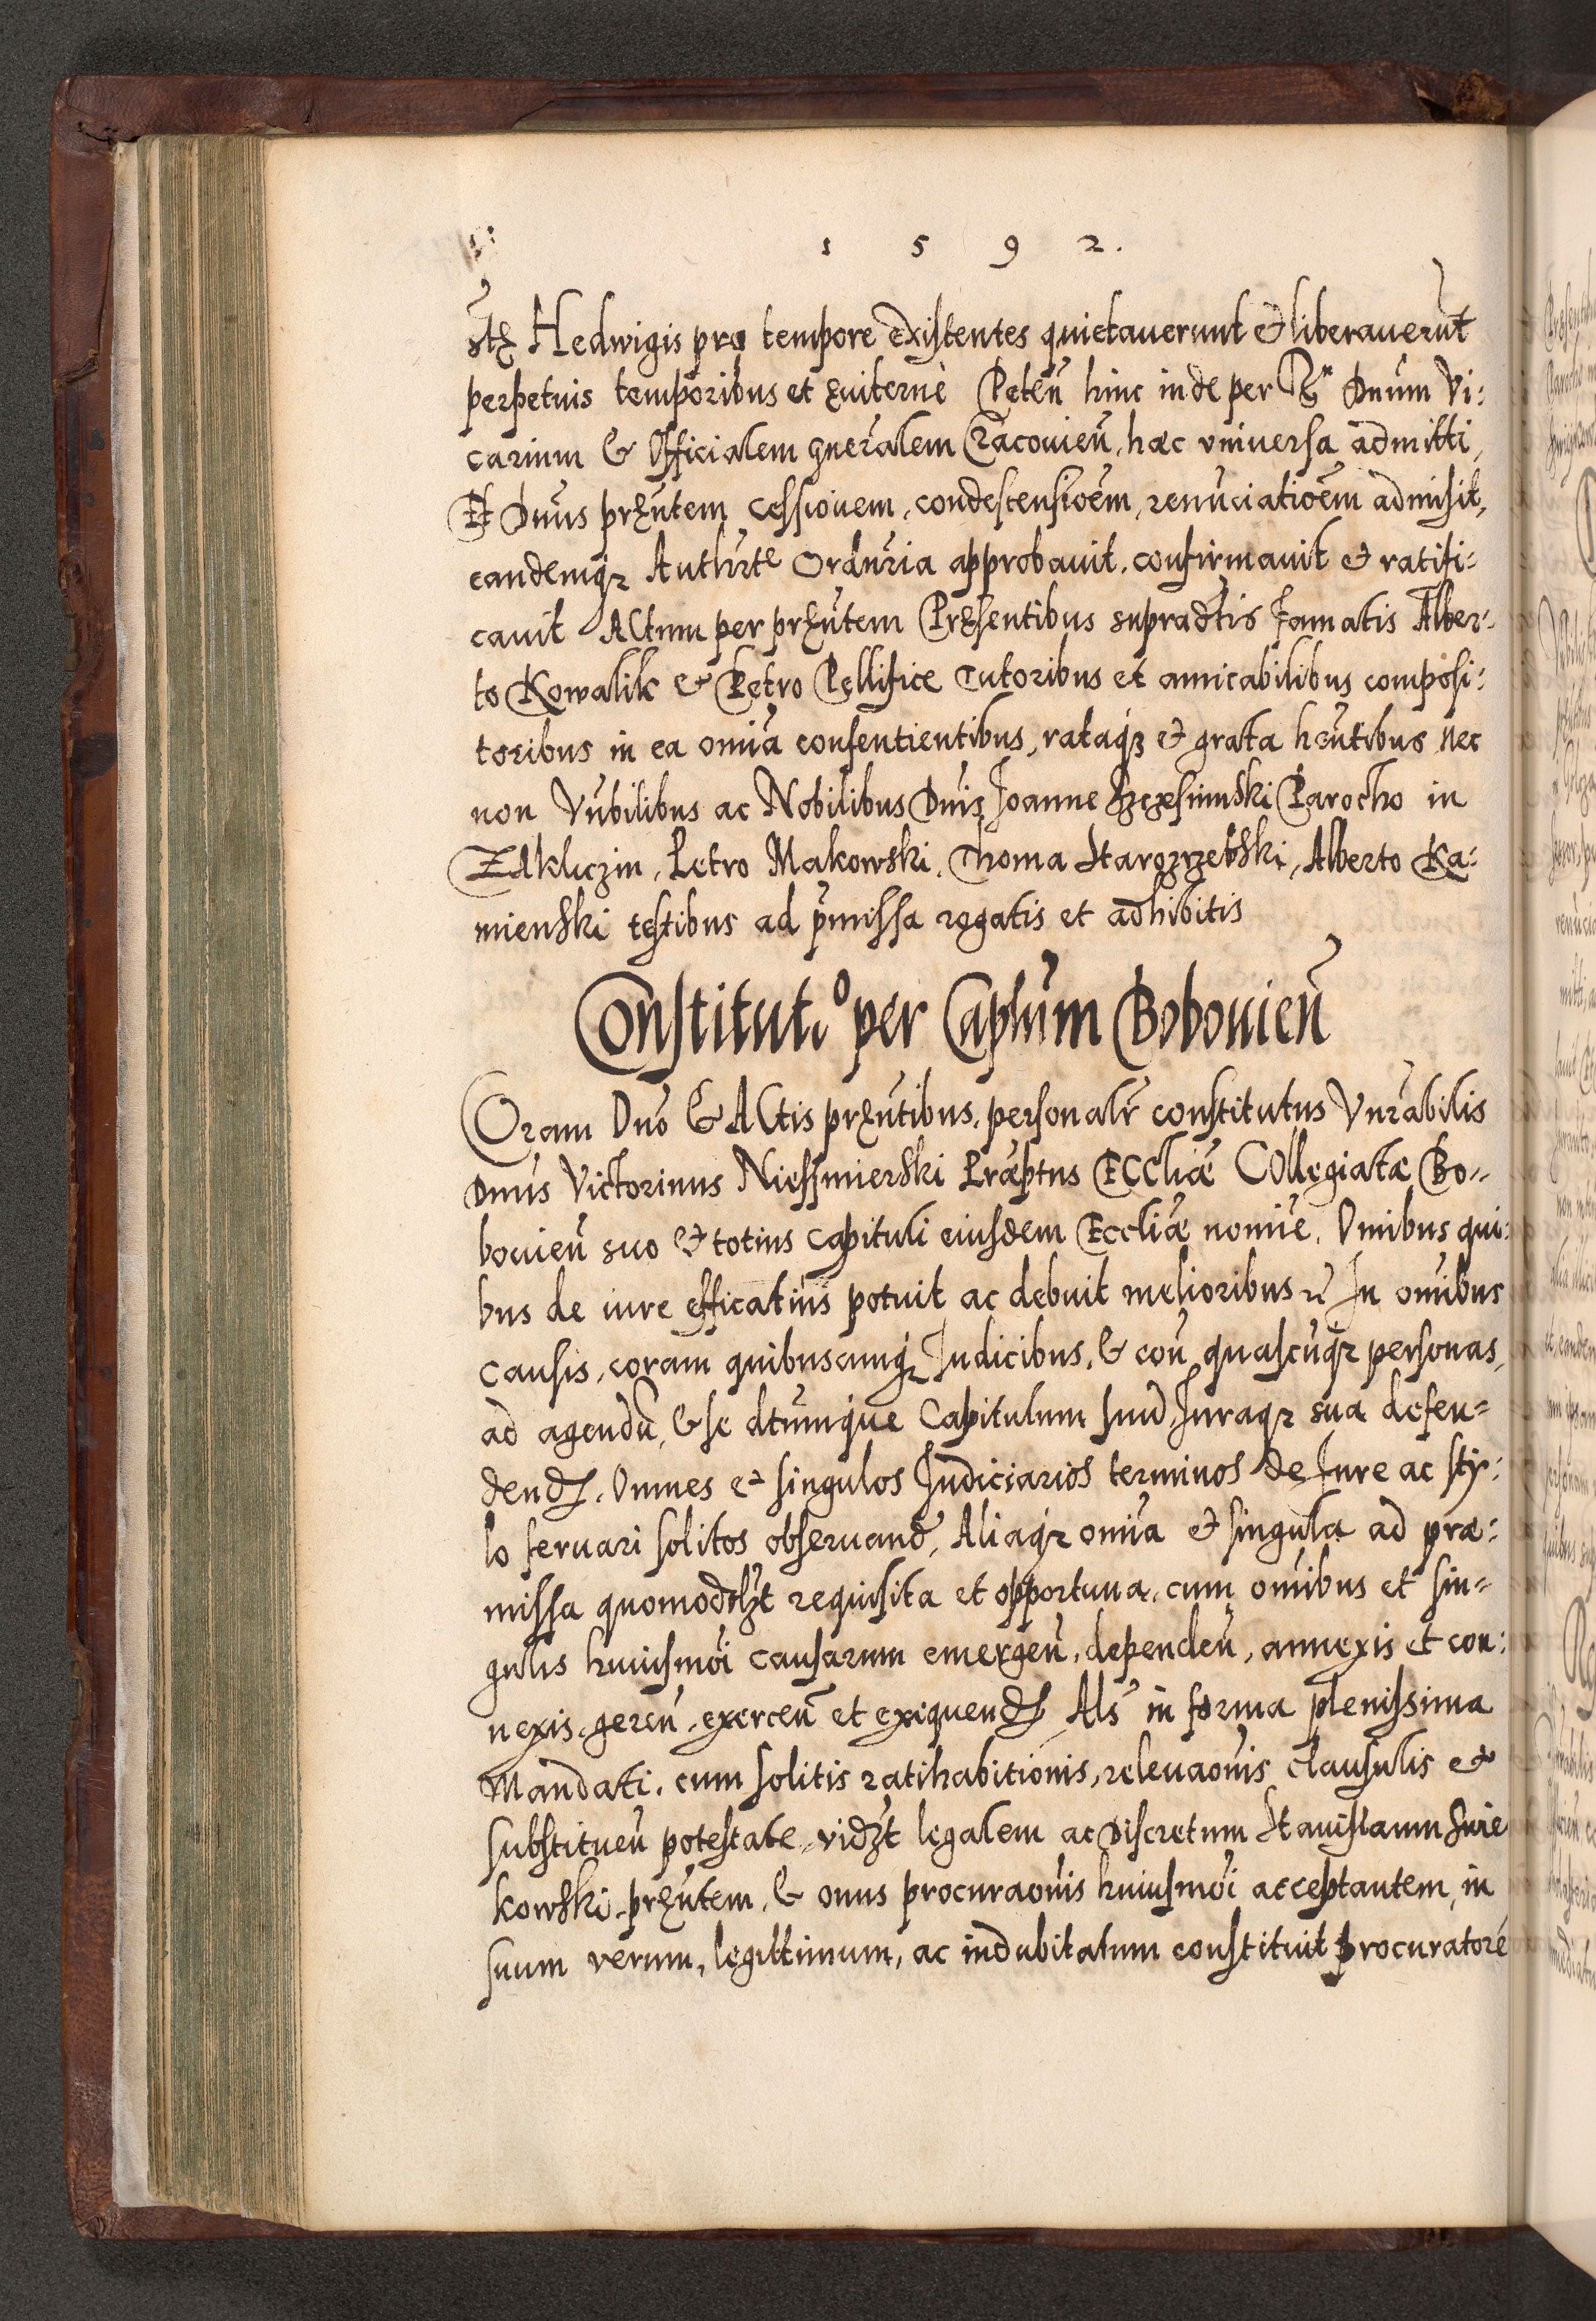 1 5 9 2.
Stę Hedwigis pro tempore existentes quietauerunt et liberauerūt
perpetuis temporibus et ęuiternè Peteñ hinc inde per R Dnum Vi:
carium & Officialem gneralem Cracouieñ, hæc vniuersa admitti,
Et Dnus pręntem cessionem, condescensioem, renuciatioēm admisit,
eandemq Authrte Ordnria approbauit, confirmauit et ratifi:
cauit Actum per pręntem Pręsentibus supradtis Famatis Alber:
to Kowalik et Petro Pellifice Tutoribus et amicabilibus composi:
toribus in ea omnia consentientibus, rataq et grata hentibus nec
non Vnbilibus ac Nobilibus Dnis Joanne Parocho in
Zakliczin, Petro Makowski, Thoma Starozrzebski, Alberto Ka:
mienski testibus ad pmissa rogatis et adhibitis
Constitutio per Caplum Bobouieñ
Coram Dno & Actis pręntibus, personalr constitutus Vnrabilis
Dnus Victorinus Niessmierski Præptus Eccliæ Collegiatæ Bo:
bouieñ suo et totius Capituli eiusdem Eccliæ nomine. Omibus qui:
bus de iure efficatius potuit ac debuit melioribus In omibus
causis, coram quibuscumq Judicibus, & con quascuq personas,
ad agendū, & se dtumque Capitulum suud, Juraq sua defen:
dend. Omnes et singulos Judiciarios terminos de Jure ac sty:
lo seruari solitos obseruand, Aliaq omia et singula ad præ:
missa quomodolzt requisita et opportuna, cum omibus et sin:
gulis huiusmoi causarum emergeñ, dependeñ, annexis et con:
nexis, gereñ, exerceñ et exiquend Als in forma plenissima
Mandati, cum solitis ratihabitionis, releuaonis clausulis et
substitueñ potestate, vidzt legalem ac Discretum Stanislaum Swie
kowski pręntem, & onus procuraonis huiusmoi acceptantem, in
suum verum, legittimum, ac indubitatum constituit procuratorē